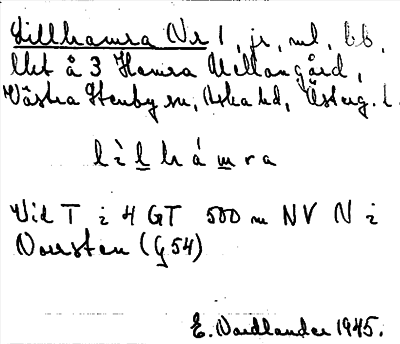 Lillhamra Nr 1, jr, ml, bb,
Utt å 3 Hamra Mellangård,
Västra Stenby sn, Aska hd, Österg. l.
lìlhámra
Vid T i 4 GT 500 m NV N i
Norrsten (G54)
E. Nordlander 1945.